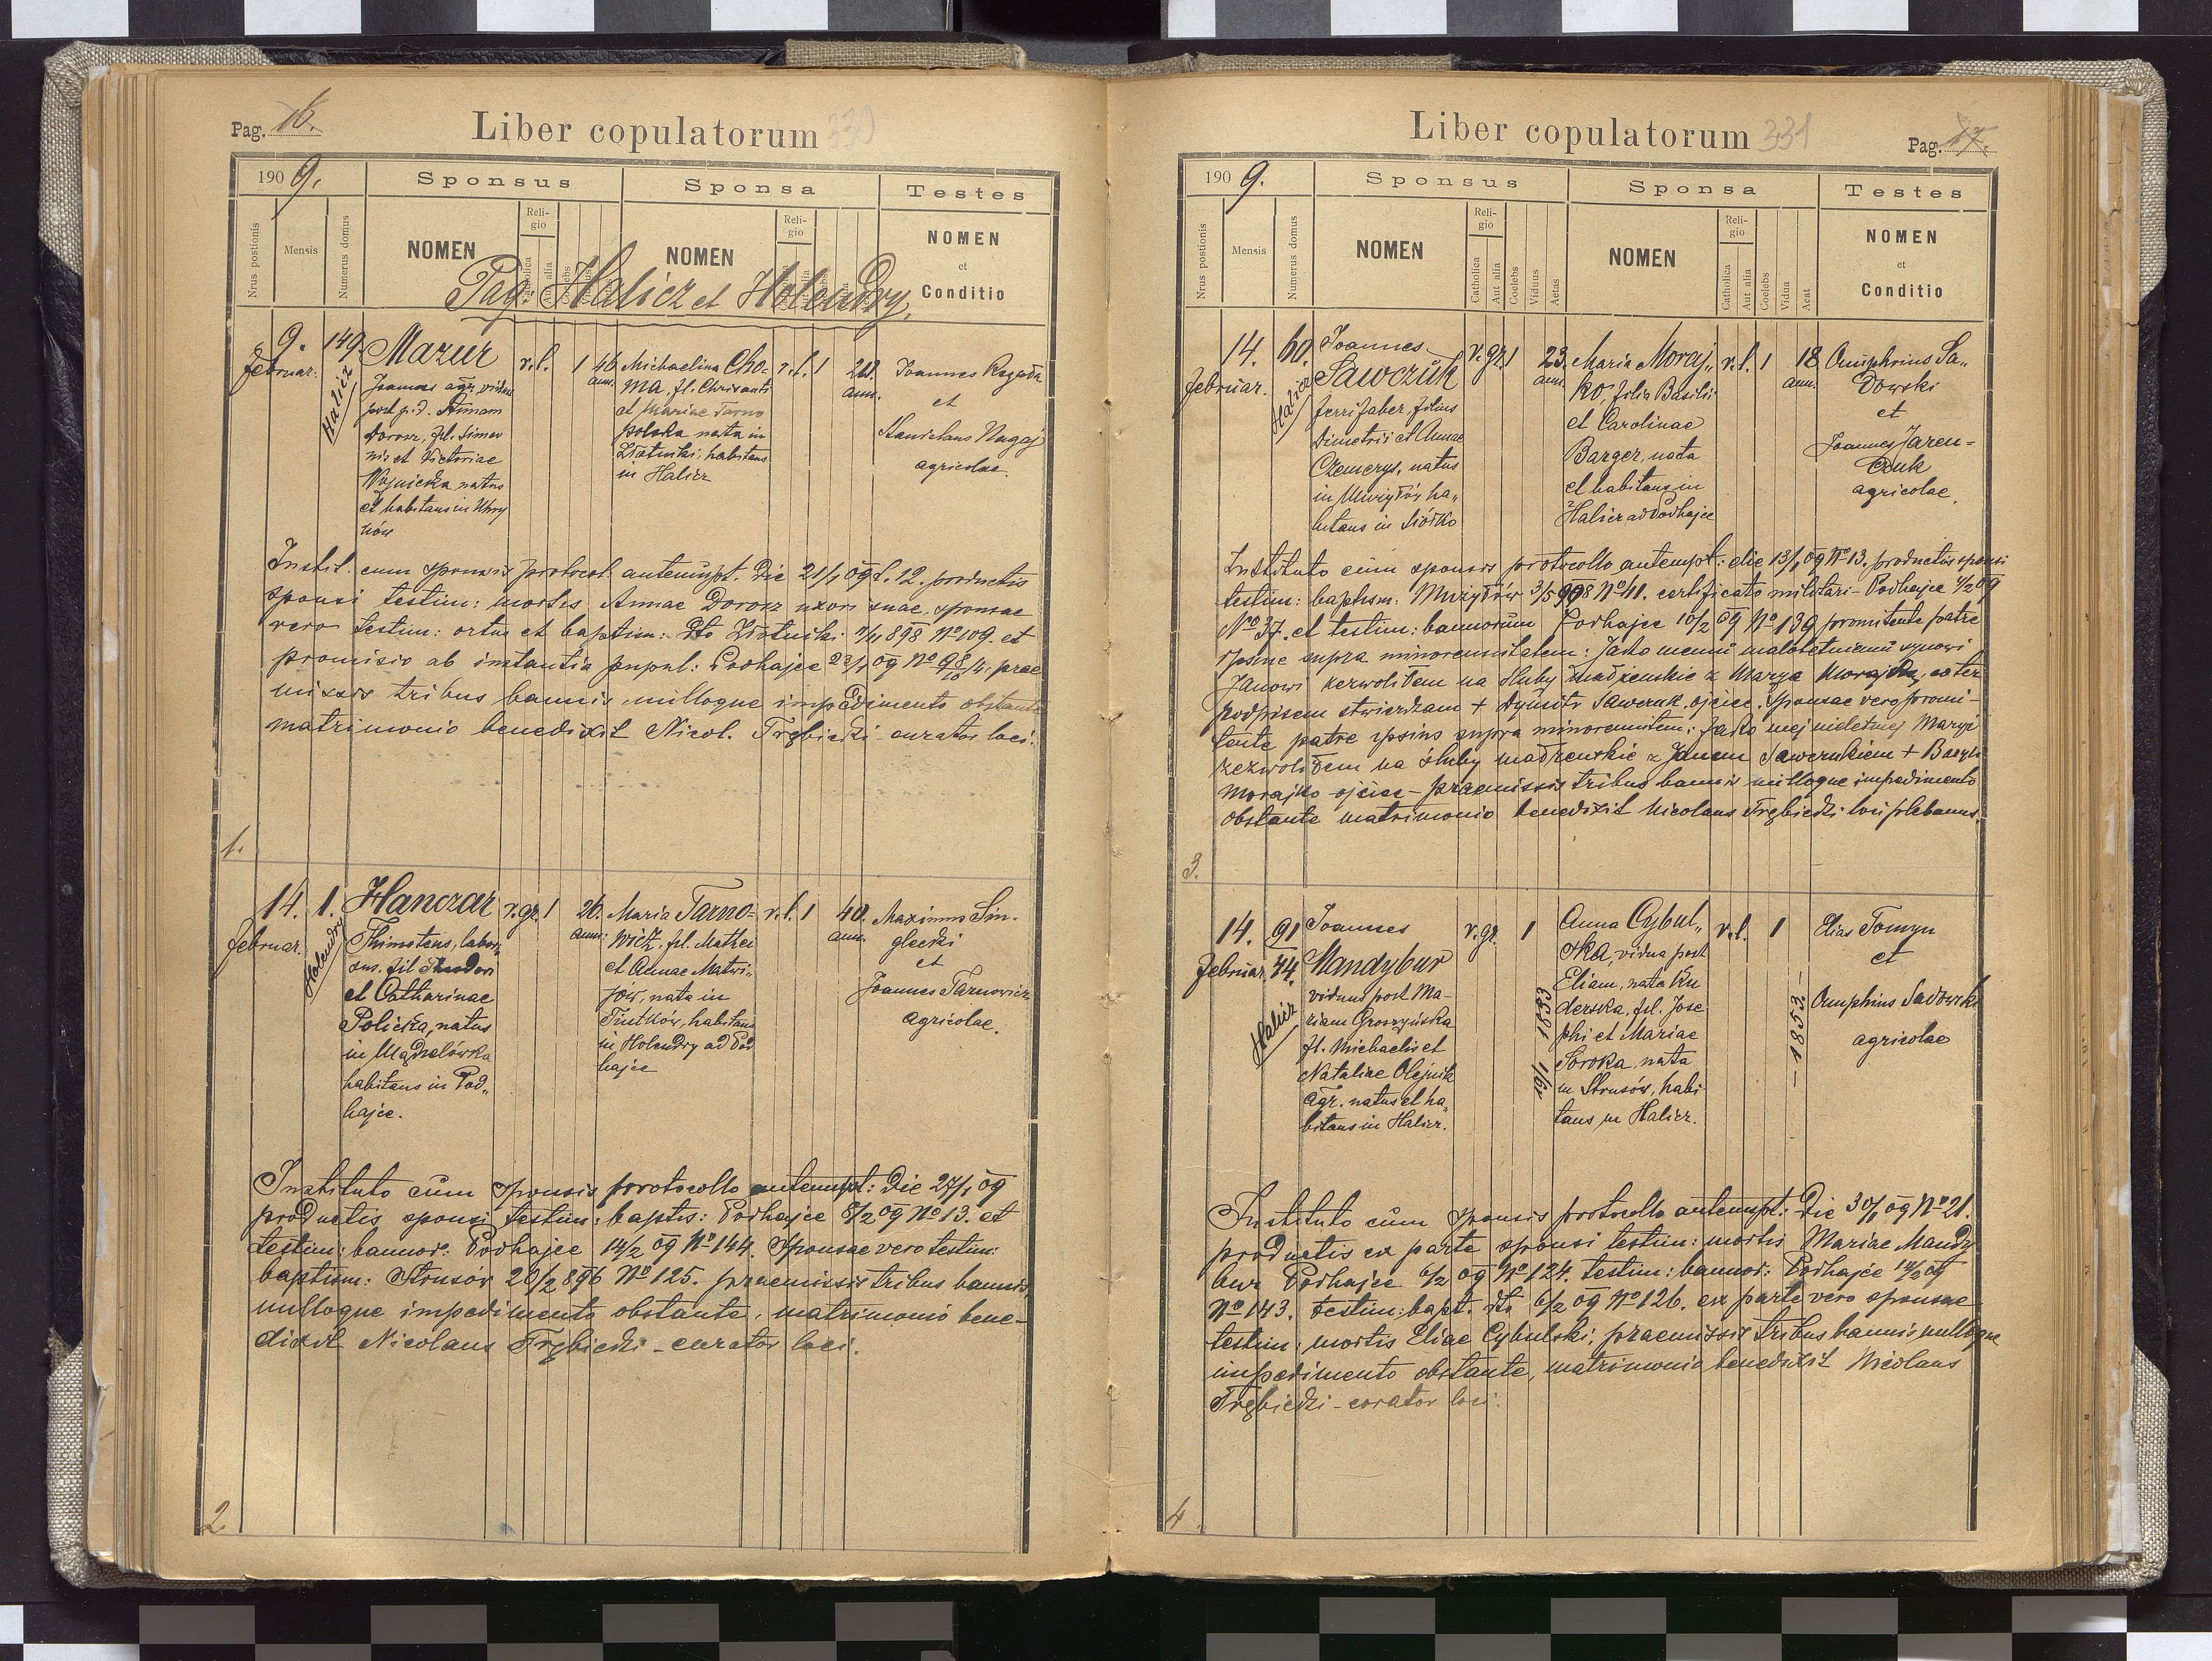 Pag. 16.
Liber copulatorum 330
190 9.
Sponsus
Sponsa
Testes
Nrus postionis
Mensis
Numerus domus
NOMEN
Religio
NOMEN
Religio
NOMEN
et
Conditio
Pag. Halicz et Holendry.
9.
Februar.
149.
Halicz
Mazur
Joannes agr. viduus
post p. d. Annam
Dorosz, fil. Simeo
nis et Victoriae
Wojnicka, natus
et habitans in
r. l.
1
46.
ann.
Michaelina Cho-
ma, fl. Chrisanti
et Mariae Tarno
polska nata in
Złotniki, habitans
in Halicz
r. l.
1
ann.
Joannes
et
Stanislaus Nagaj
agricolae.
Instit. cum sponsis protocol. antenupt. die 21/1 09 l. 12. productis
sponsi testim: mortis Annae Dorosz uxori suae, sponsae
vero testim: ortus et baptism: Dto Złotniki 898 Nº 109. et
promisio ab instantia pupul: Podhajce 22/1 09 Nº prae
missis tribus bannis nulloque impedimento obstante
matrimonio benedixit Nicol. Trębicki curator loci.
1.
14.
Februar.
1.
Holendry
Hanczar
Thimoteus, labor,,
ius. fil Theodori
et Catharinae
Policka, natus
in Mądzelówka
habitans in Pod,,
hajce.
r. gr.
1
26.
ann:
Maria Tarno-
wicz, fl. Mathei
et Annae Matwi,,
jów, nata in
habitans
in Holendry ad Pod
hajce
r. l.
1
40.
ann.
Maximus Sin-
glecki
et
Joannes Tarnowicz
agricolae.
Instituto cum sponsis protocollo antenupt: die 27/1 09
productis sponsi testim: baptis: Podhajce 8/2 09 Nº 13. et
testim: bannor: Podhajce 14/2 09 Nº 144. Sponsae vero testim:
baptism: Strusów 20/2 896 Nº 125. praemissis tribus bannis
nulloque impedimento obstante, matrimonio bene-
dixit Nicolaus Trębicki - curator loci.
2.
Liber copulatorum 331
Pag. 17.
190 9.
Sponsus
Sponsa
Testes
Nrus postionis
Mensis
Numerus domus
NOMEN
Religio
Catholica
Aut alia
Coelebs
Viduus
Aetas
NOMEN
Religio
Catholica
Aut alia
Coelebs
Vidua
Aeat
NOMEN
et
Conditio
14.
Februar.
60.
Halicz
Joannes
Sawczuk
ferrifaber, filius
Dimetrii et Annae
Czemerys, natus
in Mużyłów ha,,
bitans in Siółko
r. gr.
1
23.
ann.
Maria Moraj,,
ko, filia Basilii
et Carolinae
Barger, nata
et habitans in
Halicz ad Podhajce
r. l.
1
18
ann.
Onuphrius Sa,,
dowski
et
Joannes Jaren-
czuk
agricolae.
Instituto cum sponsis protocollo antenupt: die 13/1 09 Nº 13. productis sponsi
testim: baptism: Mużyłów 3/5 908 Nº 41. certificato militari - Podhajce 4/2 09
Nº 37. et testim: bannorum Podhajce 10/2 09 Nº 139 promitente patre
ipsius supra minorennitatem: Jako memu małoletniemu synowi
Janowi zezwoliłem na śluby małżeńskie z Marya Morajko, co tez
podpisem stwierdzam + Dymitr Sawczuk, ojciec. Sponsae vero promi-
tente patre ipsius supra minorennitem: Jako mej nieletniej Maryi
zezwoliłem na śluby małżeńskie z Janem Sawczukiem + Bazyli
Morajko ojciec - praemissis tribus bannis nulloque impedimento
obstante matrimonio benedixit Nicolaus Trębicki loci plebanus.
3.
14.
Februar.
91
44.
Halicz
Joannes
Mandybur
viduus post Ma-
riam Groszyńska
fl. Michaelis et
Nataliae Olejnik
Agr. natus et ha,,
bitans in Halicz.
r. gr.
1
19/1 1833
Anna Cybul,,
ska, vidua post
Eliam, nata Ku
derska, fil. Jose
phi et Mariae
Soroka, nata
in Strusów, habi
tans in Halicz.
r. l.
1
- 1853 -
Elias Tomyn
et
Onuphius Sadowski
agricolae
Instituto cum sponsis protocollo antenupt: Die 30/1 09 Nº 21.
productis ex parte sponsi testim: mortis Mariae Mandy
bur Podhajce 6/2 09 Nº 124. testim: bannor: Podhajce 14/2 09
Nº 143. testim: bapt. dto 6/2 09 Nº 126. ex parte vero sponsae
testim: mortis Eliae Cybulski, praemissis tribus bannis nulloque
impedimento obstante, matrimonio benedixit Nicolaus
Trębicki - curator loci.
4.